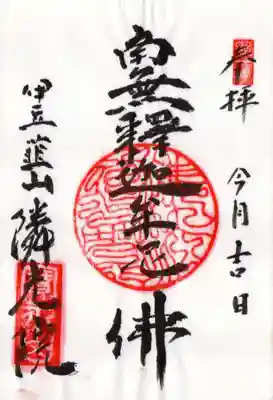 奉拝
今月吉日
南無釋迦牟尼佛
伊豆韮山
隣光院